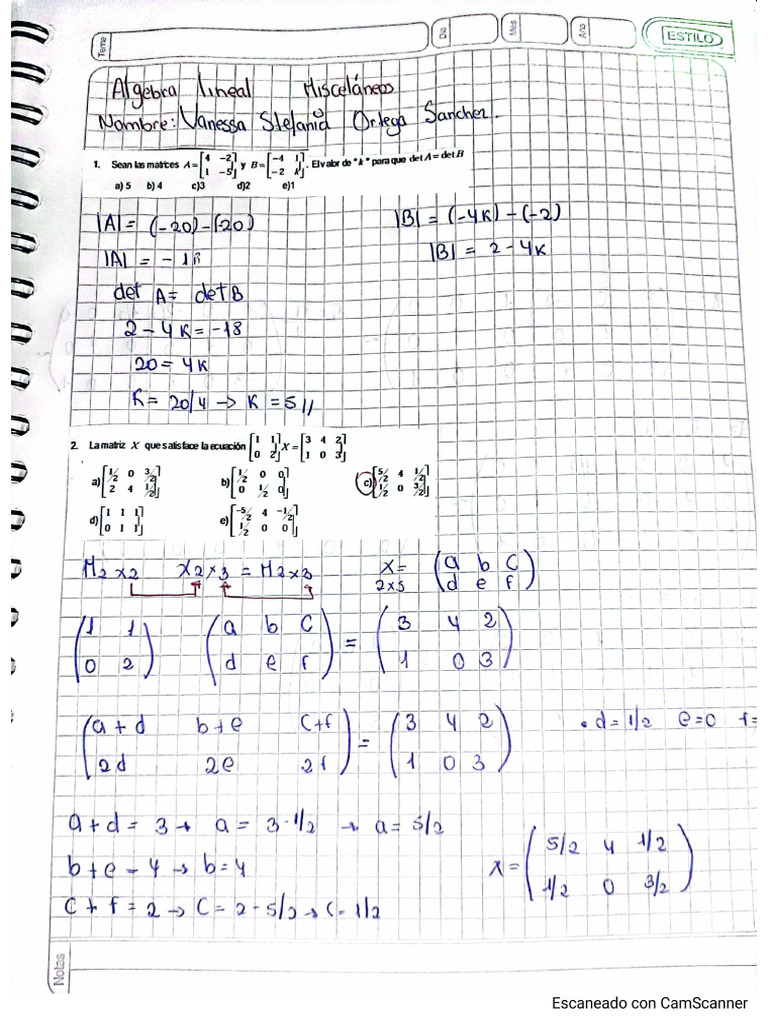 Tema Dia Mes Año ESTILO
Algebra lineal Misceláneos
Nombre: Vanessa Stefania Ortega Sancher.
1. Sean las matrices A = [4 -2; 1 -5] y B = [-4 1; -2 k]. El valor de "k" para que det A = det B
a) 5 b) 4 c)3 d)2 e)1
|A| = (-20)-(-20) |B| = (-4K)-(-2)
|A| = -18 |B| = 2-4K
det A = det B
2-4K = -18
20 = 4K
K = 20/4 → K = 5 //
2. La matriz X que satisface la ecuación [1 1; 0 2] X = [3 4 2; 1 0 3]
a) [1/2 0 3/2; 2 4 1/2] b) [1/2 0 0; 0 1/2 0] c) [5/2 4 1/2; 1/2 0 3/2]
d) [1 1 1; 0 1 1] e) [-5/2 4 -1/2; 1/2 0 0]
M2x2 X2x3 = M2x3 X= 2x3 (a b c; d e f)
(1 1; 0 2) (a b c; d e f) = (3 4 2; 1 0 3)
(a+d b+e c+f; 2d 2e 2f) = (3 4 2; 1 0 3) • d=1/2 e=0 f=
a+d = 3 → a = 3-1/2 → a = 5/2
b+e - 4 → b=4
c+f = 2 → c = 2-5/2 → c- 1/2
x = (5/2 4 1/2; 1/2 0 3/2)
Notas
Escaneado con CamScanner